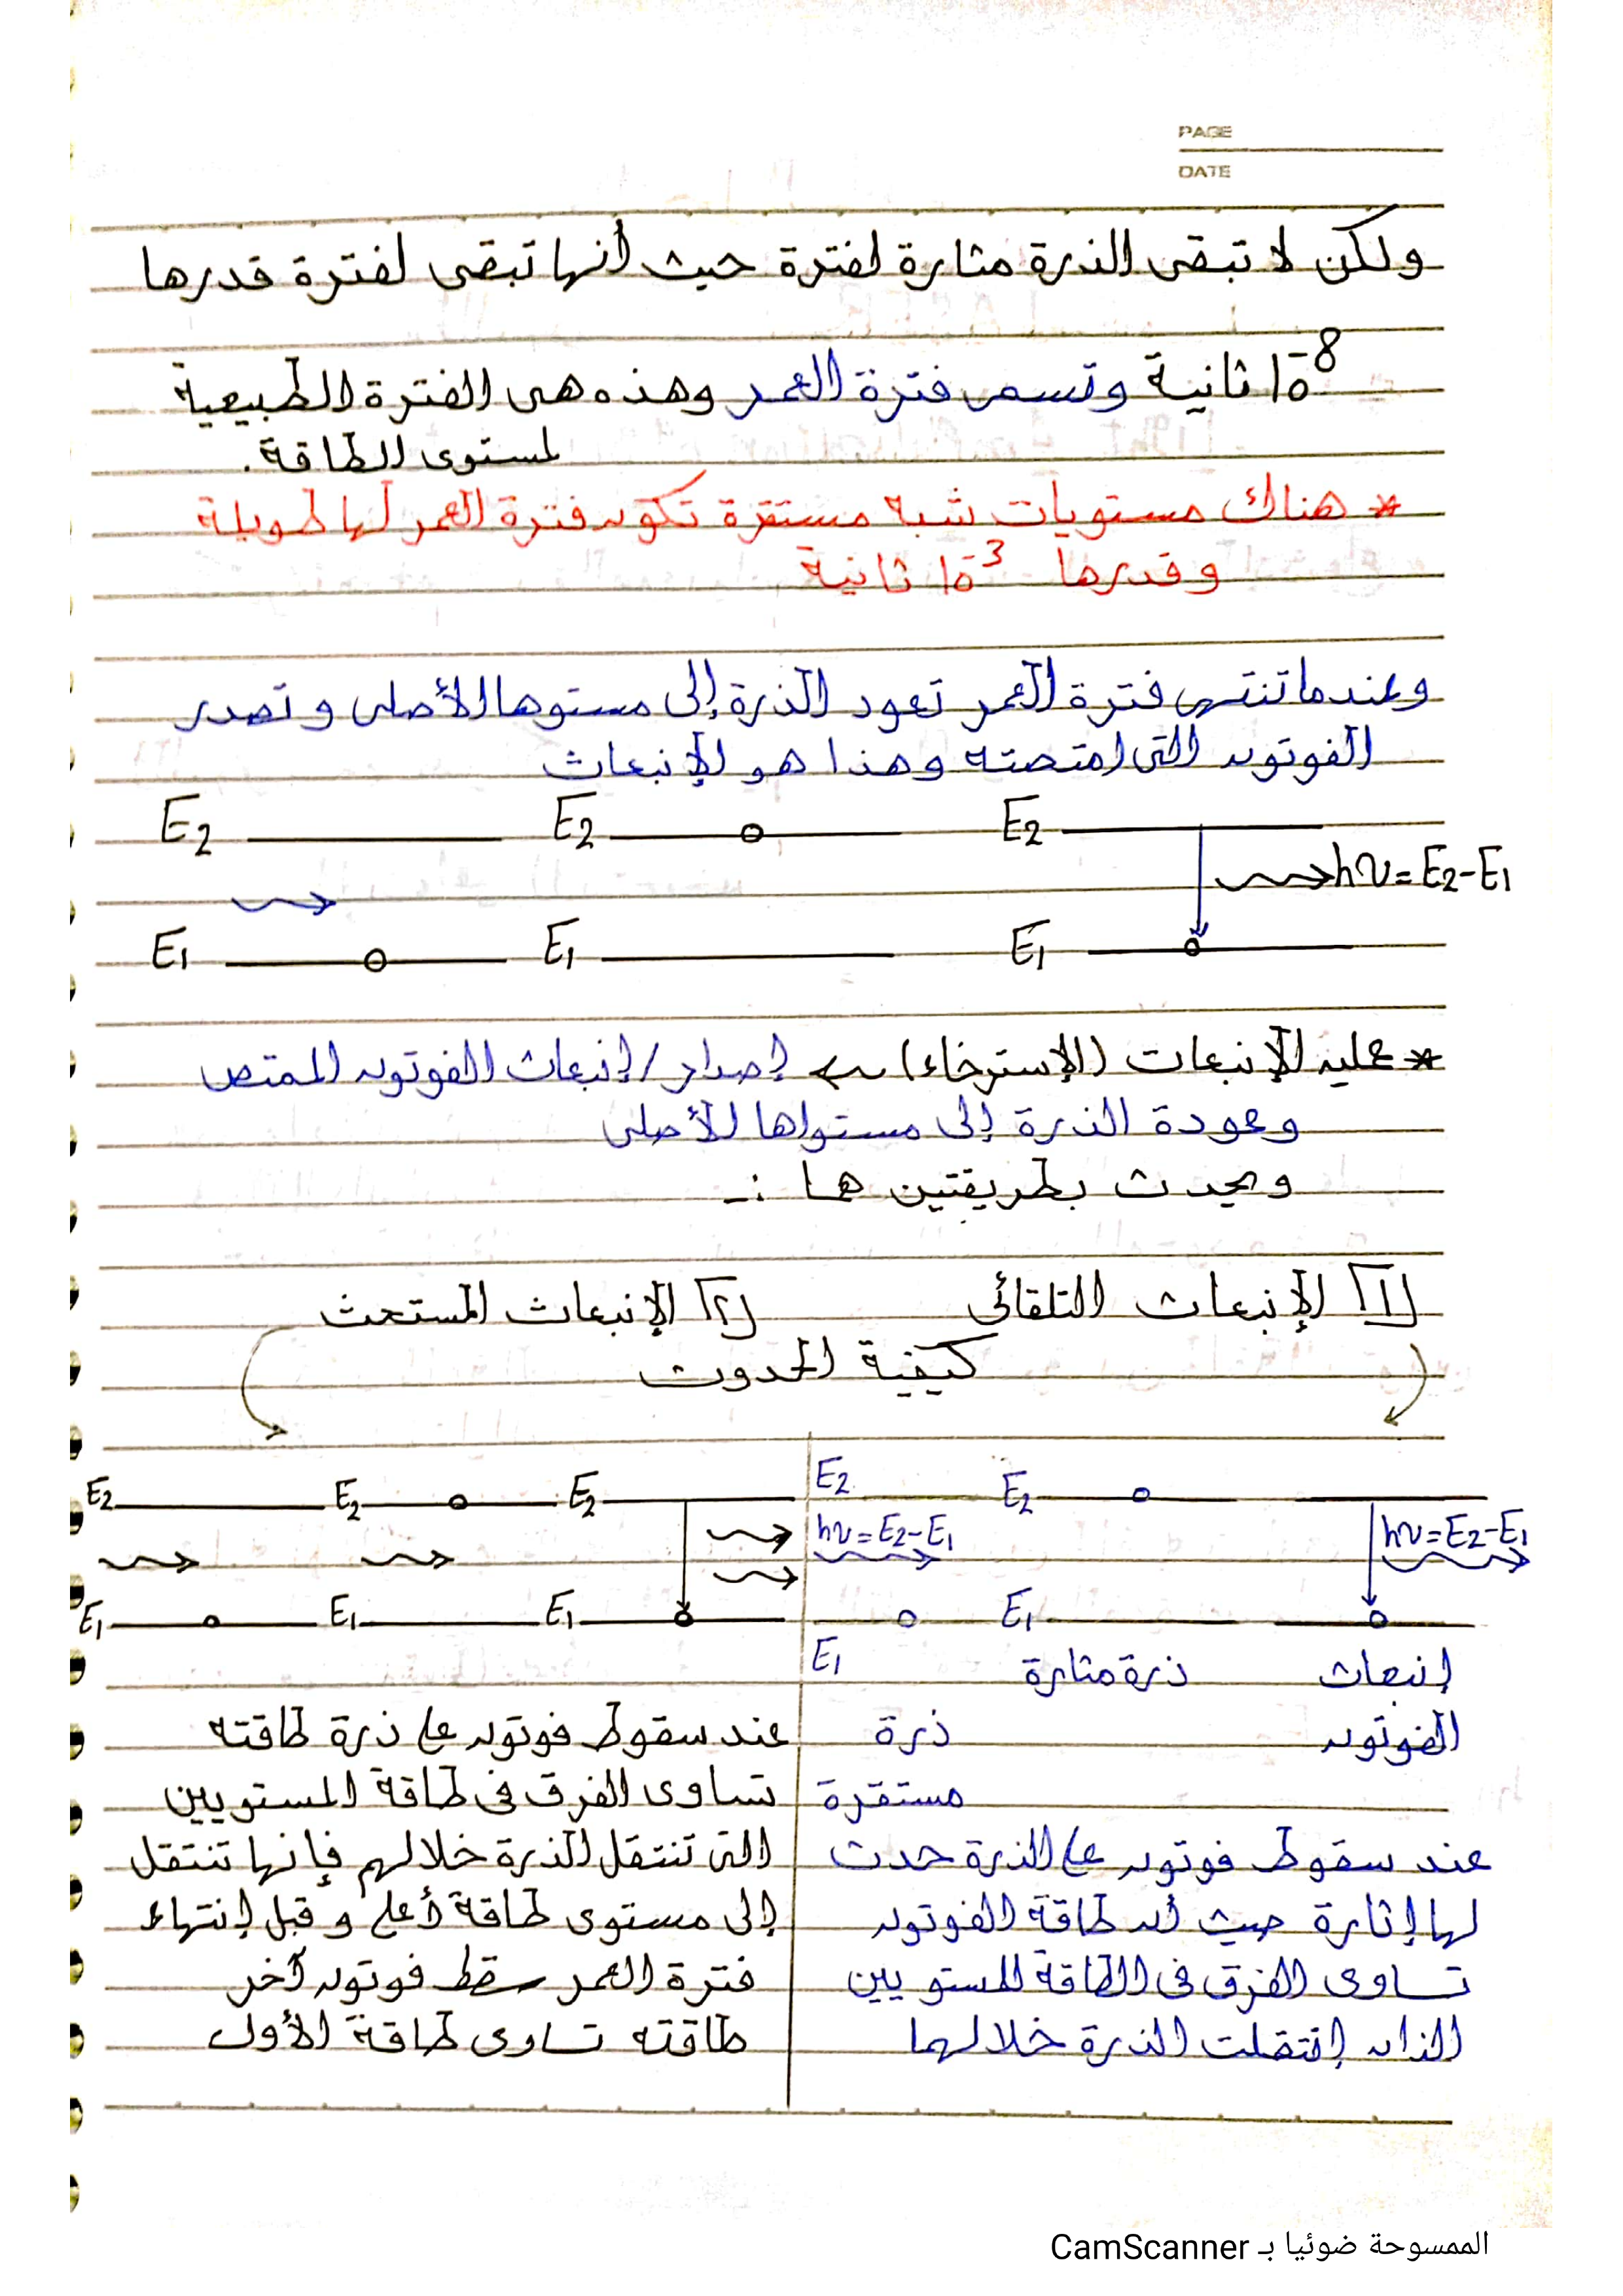 PAGE
DATE
ولكن لا تبقى الذرة مثارة لفترة حيث أنها تبقى لفترة قدرها
10⁻⁸ ثانية وتسمى فترة العمر وهذه هى الفترة الطبيعية
لمستوى الطاقة.
* هناك مستويات شبه مستقرة تكون فترة العمر لها طويلة
وقدرها 10⁻³ ثانية
وعندما تنتهى فترة العمر تعود الذرة إلى مستوها الأصلى وتصدر
الفوتون التى امتصته وهذا هو الإنبعاث
E2 E2 E2
hν = E2-E1
E1 E1 E1
* عليه الإنبعاث (الإسترخاء) ← إصدار/إنبعاث الفوتون الممتص
وعودة الذرة إلى مستواها الأصلى
ويحدث بطريقتين هما :-
[1] الإنبعاث التلقائى [2] الإنبعاث المستحث
كيفية الحدوث
E2 E2
hν = E2-E1 hν = E2-E1
E1
E1
ذرة مثارة إنبعاث
ذرة الفوتون
مستقرة
عند سقوط فوتون على الذرة حدث
لها إثارة حيث أن طاقة الفوتون
تساوى الفرق فى الطاقة للمستويين
الذان إنتقلت الذرة خلالهما
E2 E2 E2
E1 E1 E1
عند سقوط فوتون على ذرة طاقته
تساوى الفرق فى طاقة المستويين
التى تنتقل الذرة خلالهم فإنها تنتقل
إلى مستوى طاقة أعلى وقبل إنتهاء
فترة العمر سقط فوتون آخر
طاقته تساوى طاقة الأول
الممسوحة ضوئيا بـ CamScanner